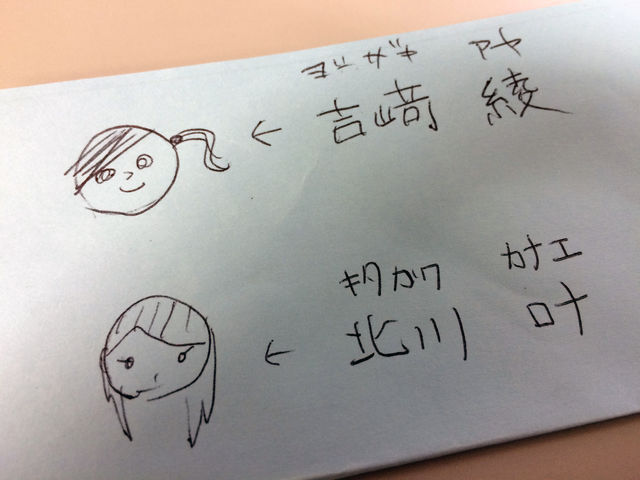 ヨシザキ アヤ
← 吉﨑 綾
キタガワ カナエ
← 北川 叶